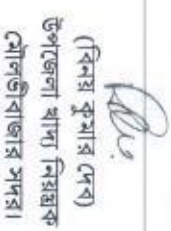 (বিনয় কুমার দেব)
উপজেলা খাদ্য নিয়ন্ত্রক
মৌলভীবাজার সদর।